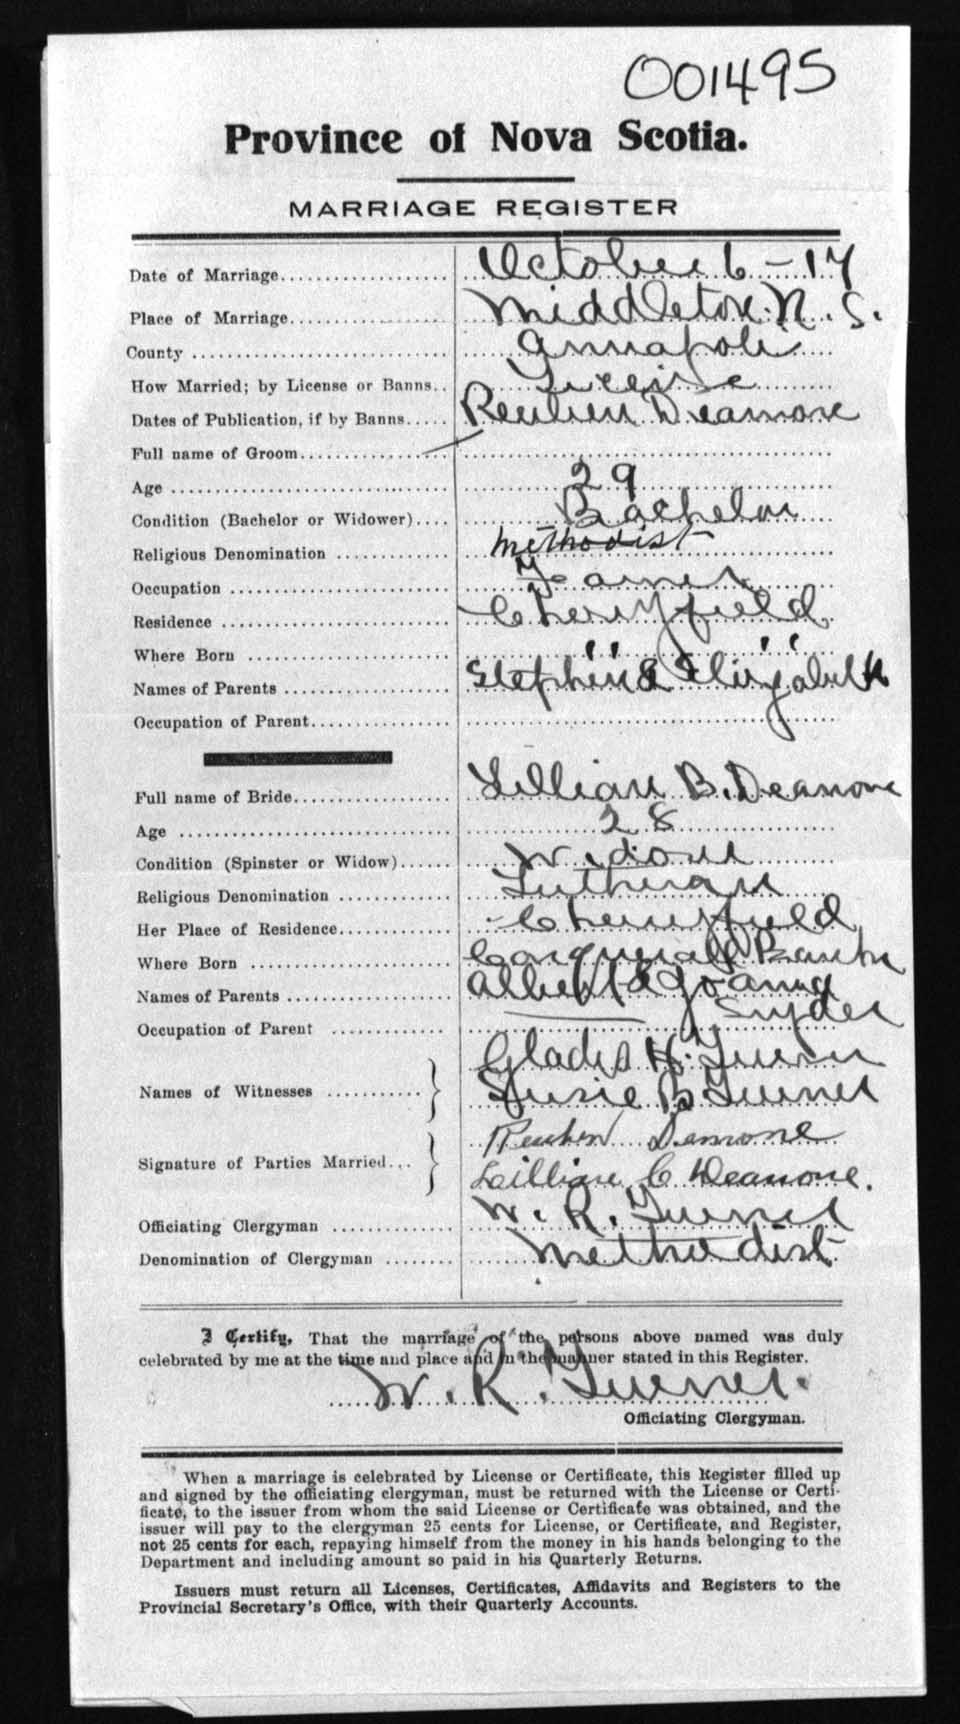 001495
Province of Nova Scotia.
MARRIAGE REGISTER
Date of Marriage October 6 - 17
Place of Marriage Middleton N. S.
County Annapolis
How Married; by License or Banns License
Dates of Publication, if by Banns Reuben Deamone
Full name of Groom
Age 29
Condition (Bachelor or Widower) Bachelor
Religious Denomination Methodist
Occupation Farmer
Residence Cherryfield
Where Born " "
Names of Parents Stephen & Elizabeth
Occupation of Parent
Full name of Bride Lillian B. Deamone
Age 28
Condition (Spinster or Widow) Widow
Religious Denomination Lutheran
Her Place of Residence Cherryfield
Where Born
Names of Parents Albert & Joanna
Snyder
Occupation of Parent
Names of Witnesses Gladis H. Turner
Susie B Turner
Signature of Parties Married Reuben Demone
Lillian C Deamone.
Officiating Clergyman W. R. Turner
Denomination of Clergyman Methodist
I Certify, That the marriage of the persons above named was duly
celebrated by me at the time and place and in the manner stated in this Register.
W. R. Turner.
Officiating Clergyman.
When a marriage is celebrated by License or Certificate, this Register filled up
and signed by the officiating clergyman, must be returned with the License or Certi-
ficate, to the issuer from whom the said License or Certificate was obtained, and the
issuer will pay to the clergyman 25 cents for License, or Certificate, and Register,
not 25 cents for each, repaying himself from the money in his hands belonging to the
Department and including amount so paid in his Quarterly Returns.
Issuers must return all Licenses, Certificates, Affidavits and Registers to the
Provincial Secretary's Office, with their Quarterly Accounts.